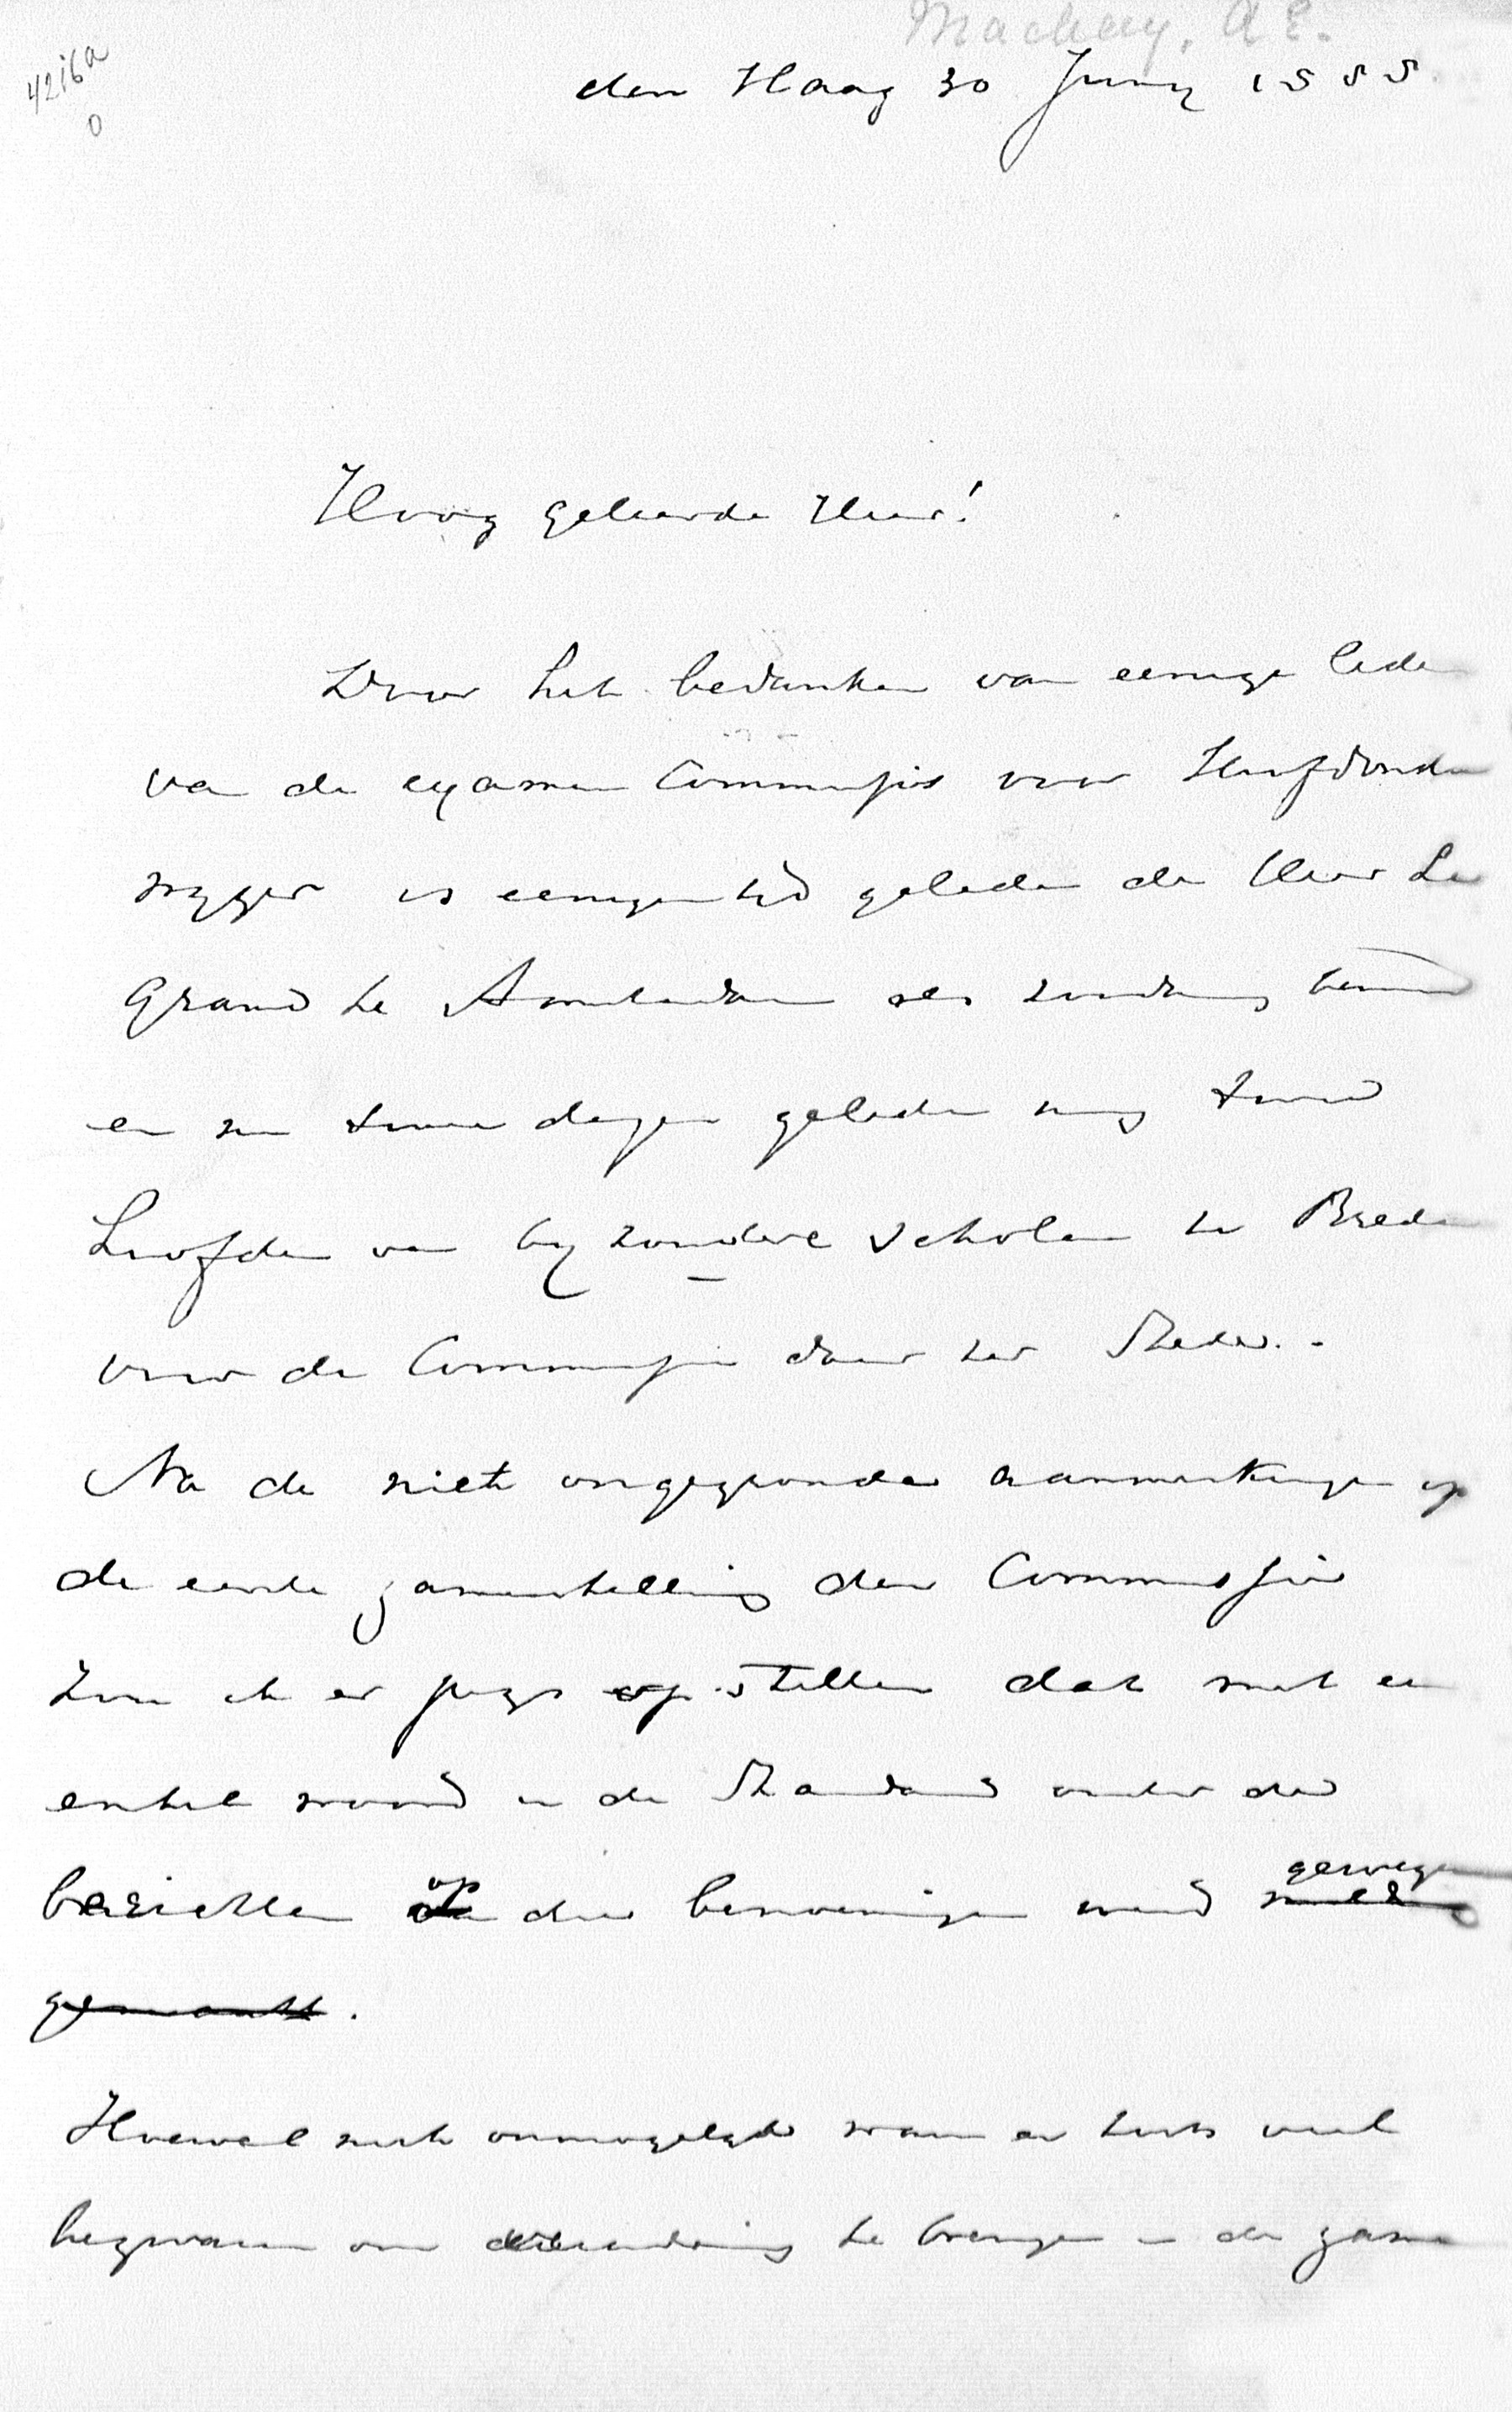 Mackay, A E.
4216a
0
den Haag 30 Juny 1888.
Hoog geleerde Heer!
Door het bedanken van eenige leden
van de examen Commissies voor Hoofdonder
wyzer is eenigen tyd geleden de Heer Le
Grand te Amsterdam als zoodanig benoemd
en nu twee dagen geleden nog twee
hoofden van byzondere scholen te Breda
voor de Commissie daar ter Stede. -
Na de niet ongegronde aanmerkingen op
de eerste zamenstelling der Commissies
zou ik er prijs op stellen dat met een
enkel woord in de Standaard onder de
berichten op die benoemingen werd gewezen
gemaakt.
Hoewel niet onmogelyk waren er toch veel
bezwaren om verandering te brengen in de zamen